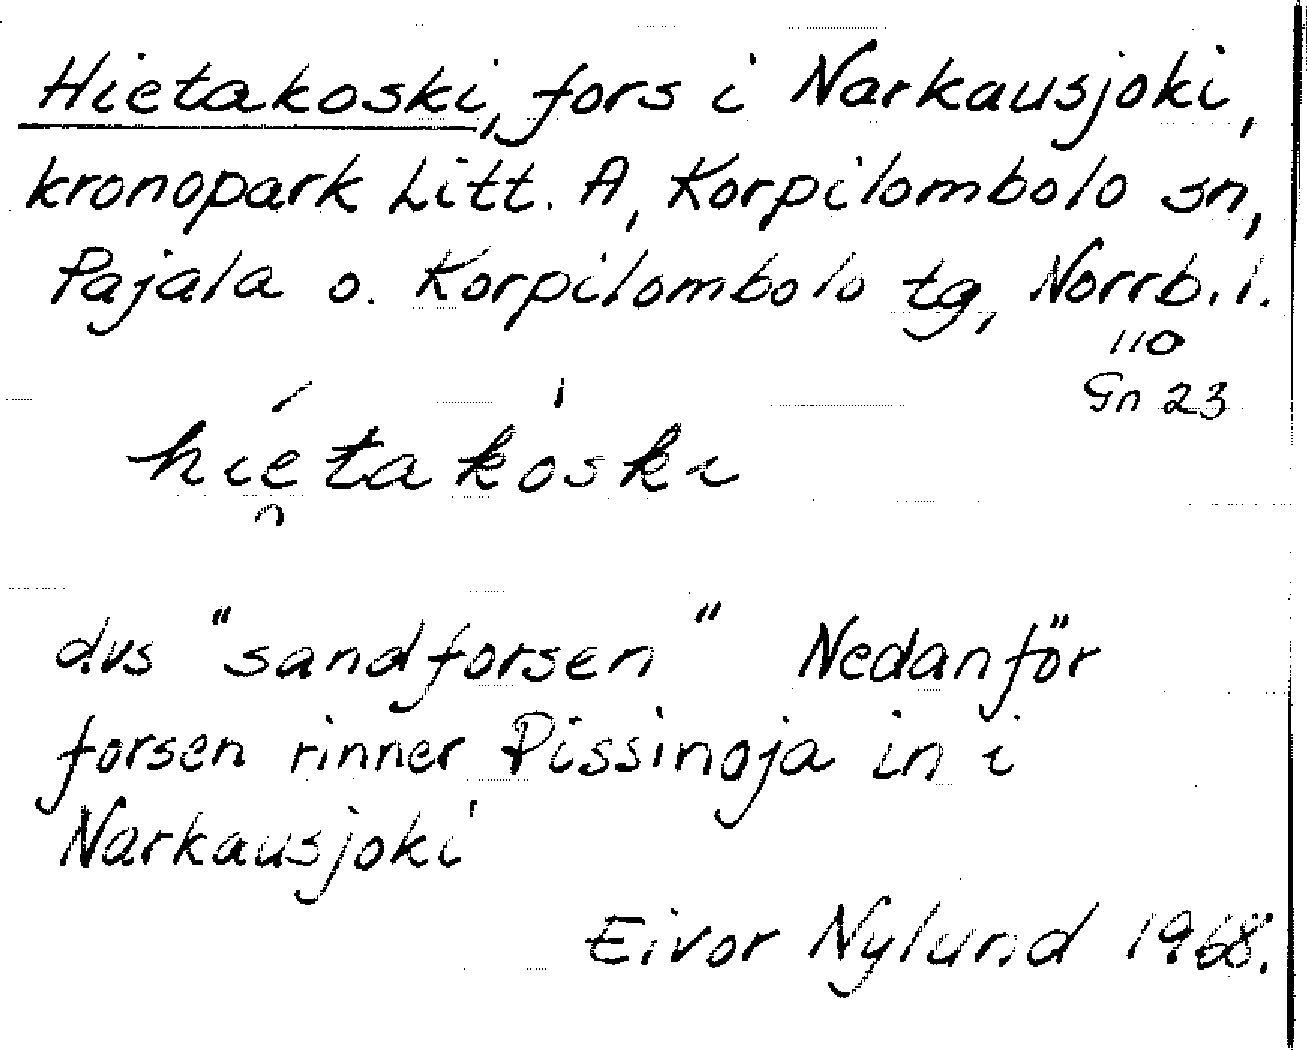 Hietakoski, fors i Narkausjoki,
kronopark Litt. A, Korpilombolo sn,
Pajala o. Korpilombolo tg, Norrb. l.
110
Gn 23
hi̯etakoski
dvs "sandforsen" Nedanför
forsen rinner Pissinoja in i
Narkausjoki
Eivor Nylund 1968.